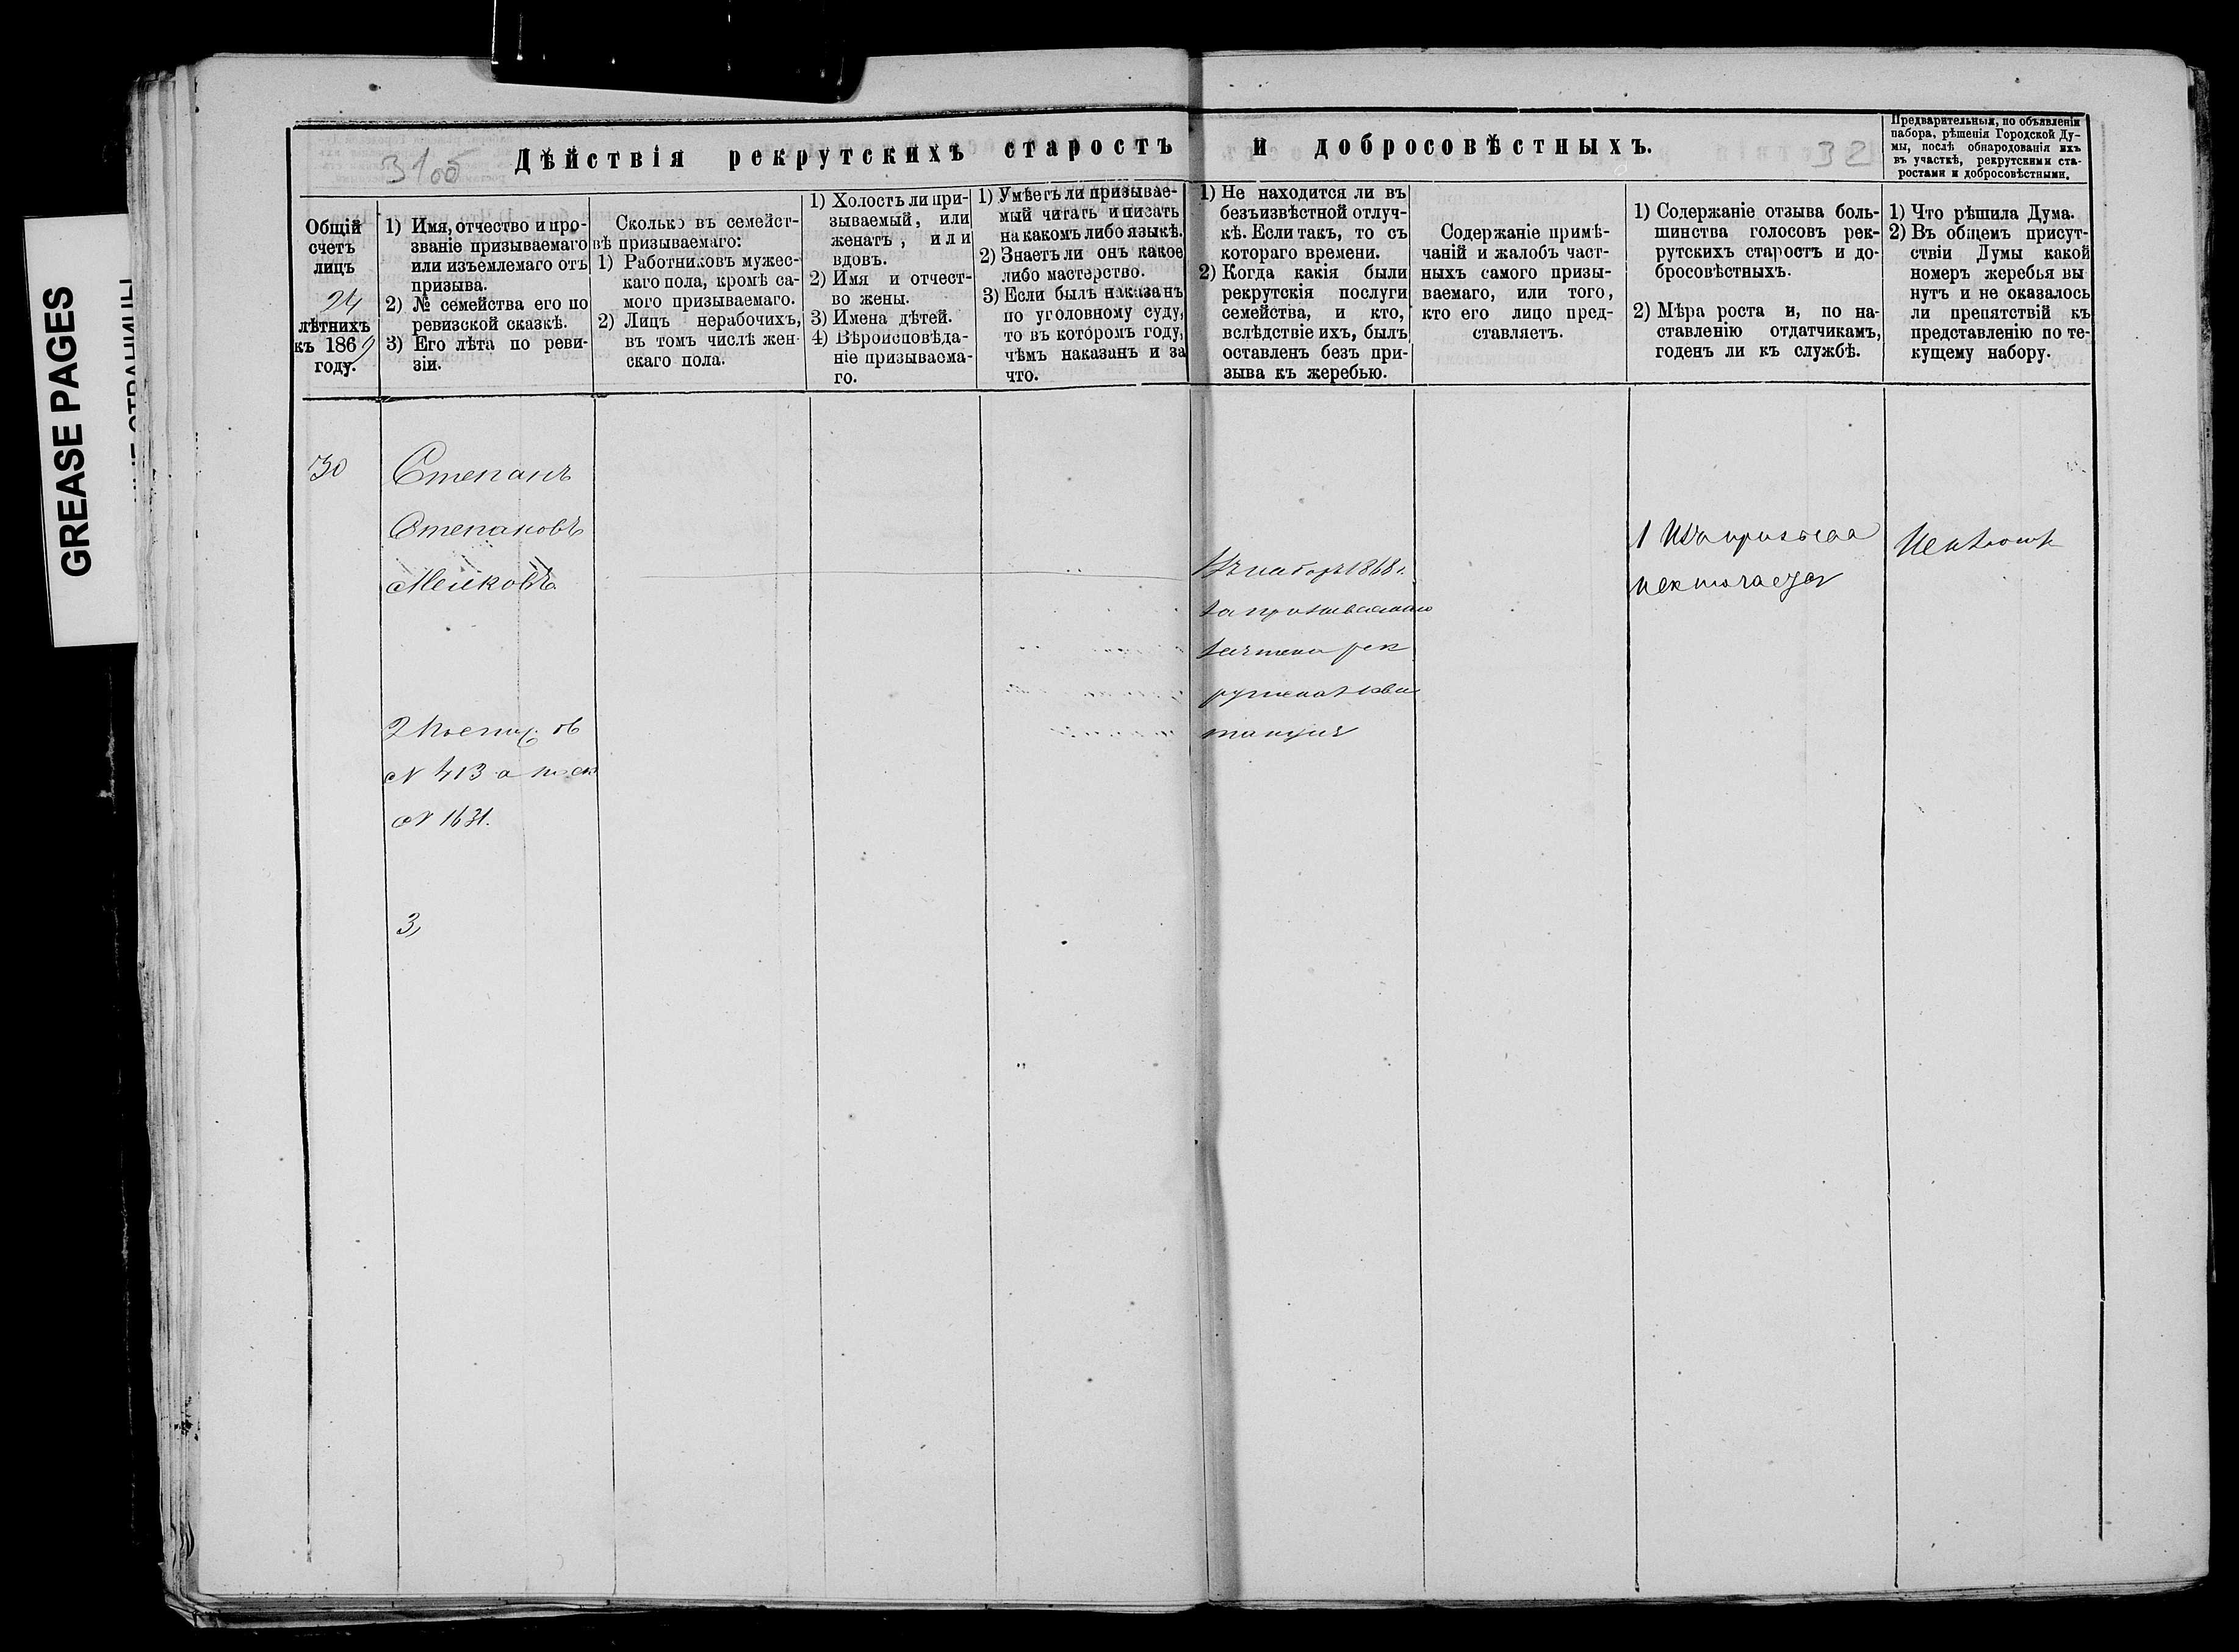 GREASE PAGES
31об
32
Дѣйствія рекрутскихъ старостъ и добросовѣстныхъ.
Предварительныя, по объявленіи
набора, рѣшенія Городской Ду-
мы, послѣ обнародованія ихъ
въ участкѣ, рекрутскими ста-
ростами и добросовѣстными.
Общій
счетъ
лицъ
24
лѣтнихъ
къ 1869
году.
1) Имя, отчество и про-
званіе призываемаго
или изъемлемаго отъ
призыва.
2) № семейства его по
ревизской сказкѣ.
3) Его лѣта по реви-
зіи.
Сколько въ семейст-
вѣ призываемаго:
1) Работниковъ мужес-
каго пола, кромѣ са-
мого призываемаго.
2) Лицъ нерабочихъ,
въ томъ числѣ жен-
скаго пола.
1) Холостъ ли при-
зываемый, или
женатъ, или
вдовъ.
2) Имя и отчест-
во жены.
3) Имена дѣтей.
4) Вѣроисповѣда-
ніе призываема-
го.
1) Умѣетъ ли призывае-
мый читать и писать
на какомъ либо языкѣ.
2) Знаетъ ли онъ какое
либо мастерство.
3) Если былъ наказанъ
по уголовному суду,
то въ которомъ году,
чѣмъ наказанъ и за
что.
1) Не находится ли въ
безъизвѣстной отлуч-
кѣ. Если такъ, то съ
котораго времени.
2) Когда какія были
рекрутскія послуги
семейства, и кто,
вслѣдствіе ихъ, былъ
оставленъ безъ при-
зыва къ жеребью.
Содержаніе примѣ-
чаній и жалобъ част-
ныхъ самого призы-
ваемаго, или того,
кто его лицо пред-
ставляетъ.
1) Содержаніе отзыва боль-
шинства голосовъ рек-
рутскихъ старостъ и до-
бросовѣстныхъ.
2) Мѣра роста и, по на-
ставленію отдатчикамъ,
годенъ ли къ службѣ.
1) Что рѣшила Дума.
2) Въ общемъ присут-
ствіи Думы какой
номеръ жеребья вы
нутъ и не оказалось
ли препятствій къ
представленію по те-
кущему набору.
30
Степанъ
Степановъ
Мелковъ
2
№ 413 а по ск
№ 1631.
3,
Въ наборъ 1868 г.
за призываемаго
зачтена рек
рутская кви
танція
1 Изъ призыва
исключается